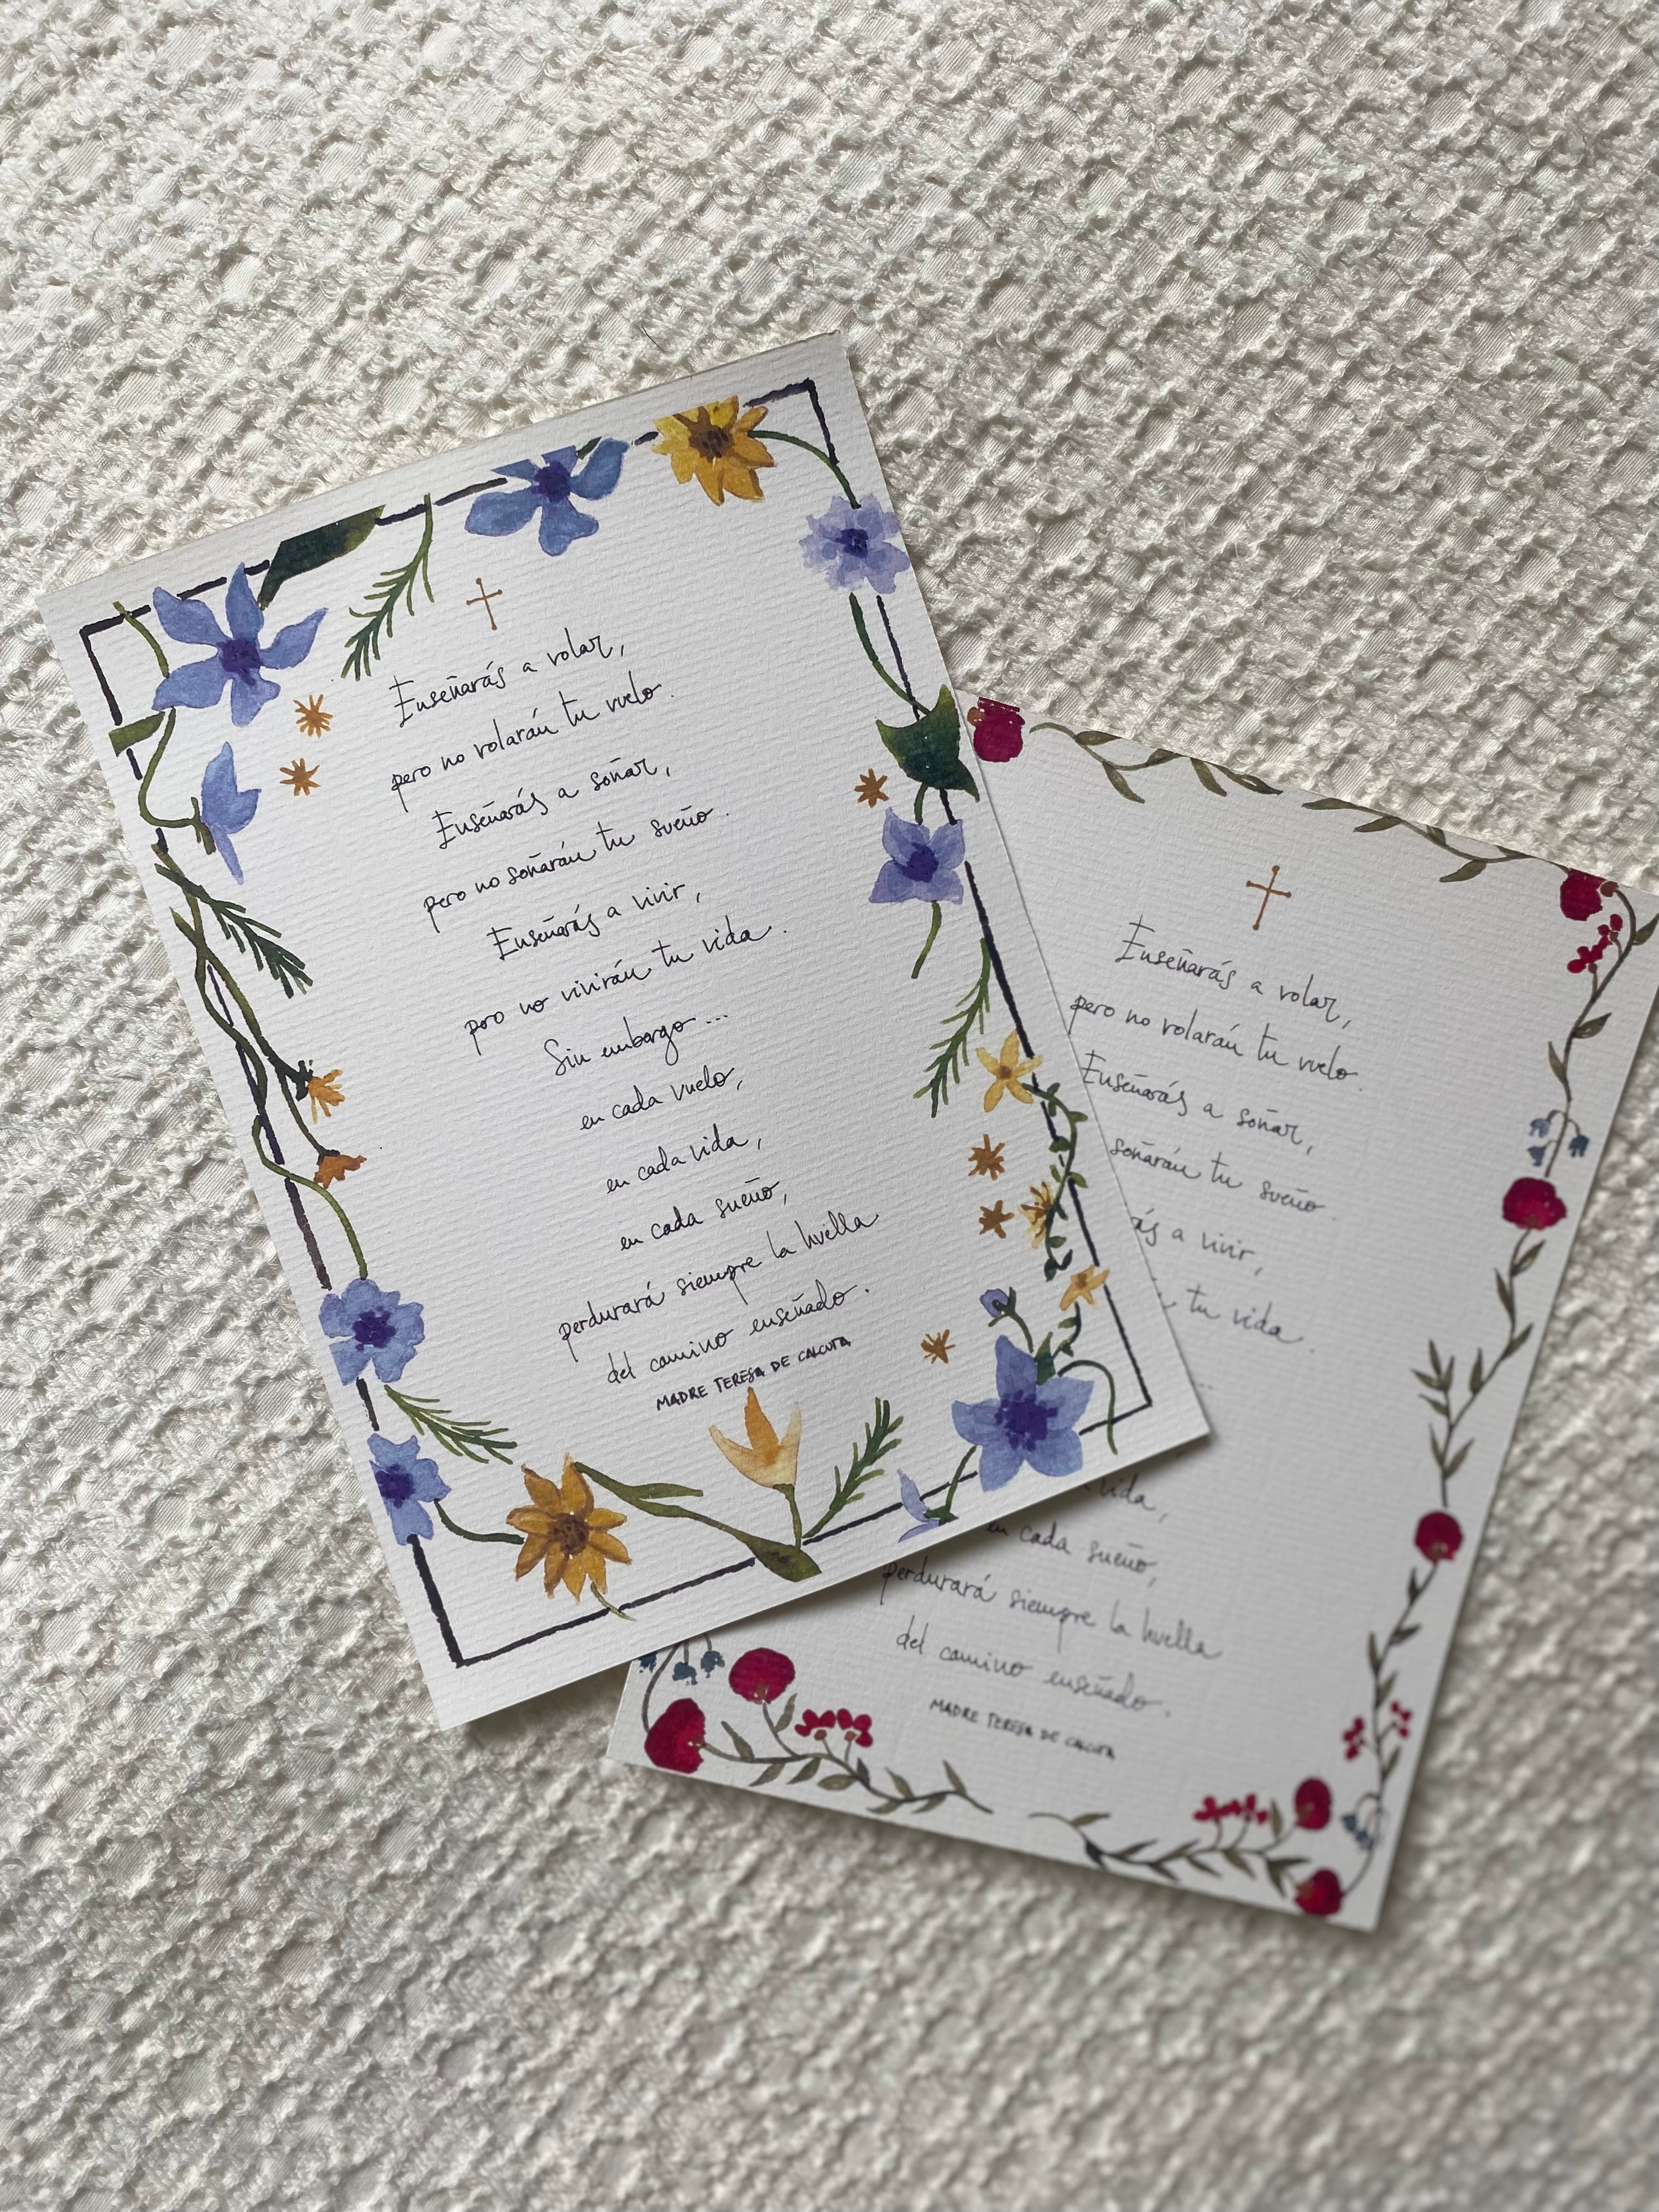 Enseñarás a volar,
pero no volarán tu vuelo.
Enseñarás a soñar,
pero no soñarán tu sueño.
Enseñarás a vivir,
pero no vivirán tu vida.
Sin embargo...
en cada vuelo,
en cada vida,
en cada sueño,
perdurará siempre la huella
del camino enseñado.
MADRE TERESA DE CALCUTA
Enseñarás a volar,
pero no volarán tu vuelo.
Enseñarás a soñar,
soñarán tu sueño.
ás a vivir,
tu vida.
...
vida,
en cada sueño,
perdurará siempre la huella
del camino enseñado.
MADRE TERESA DE CALCUTA